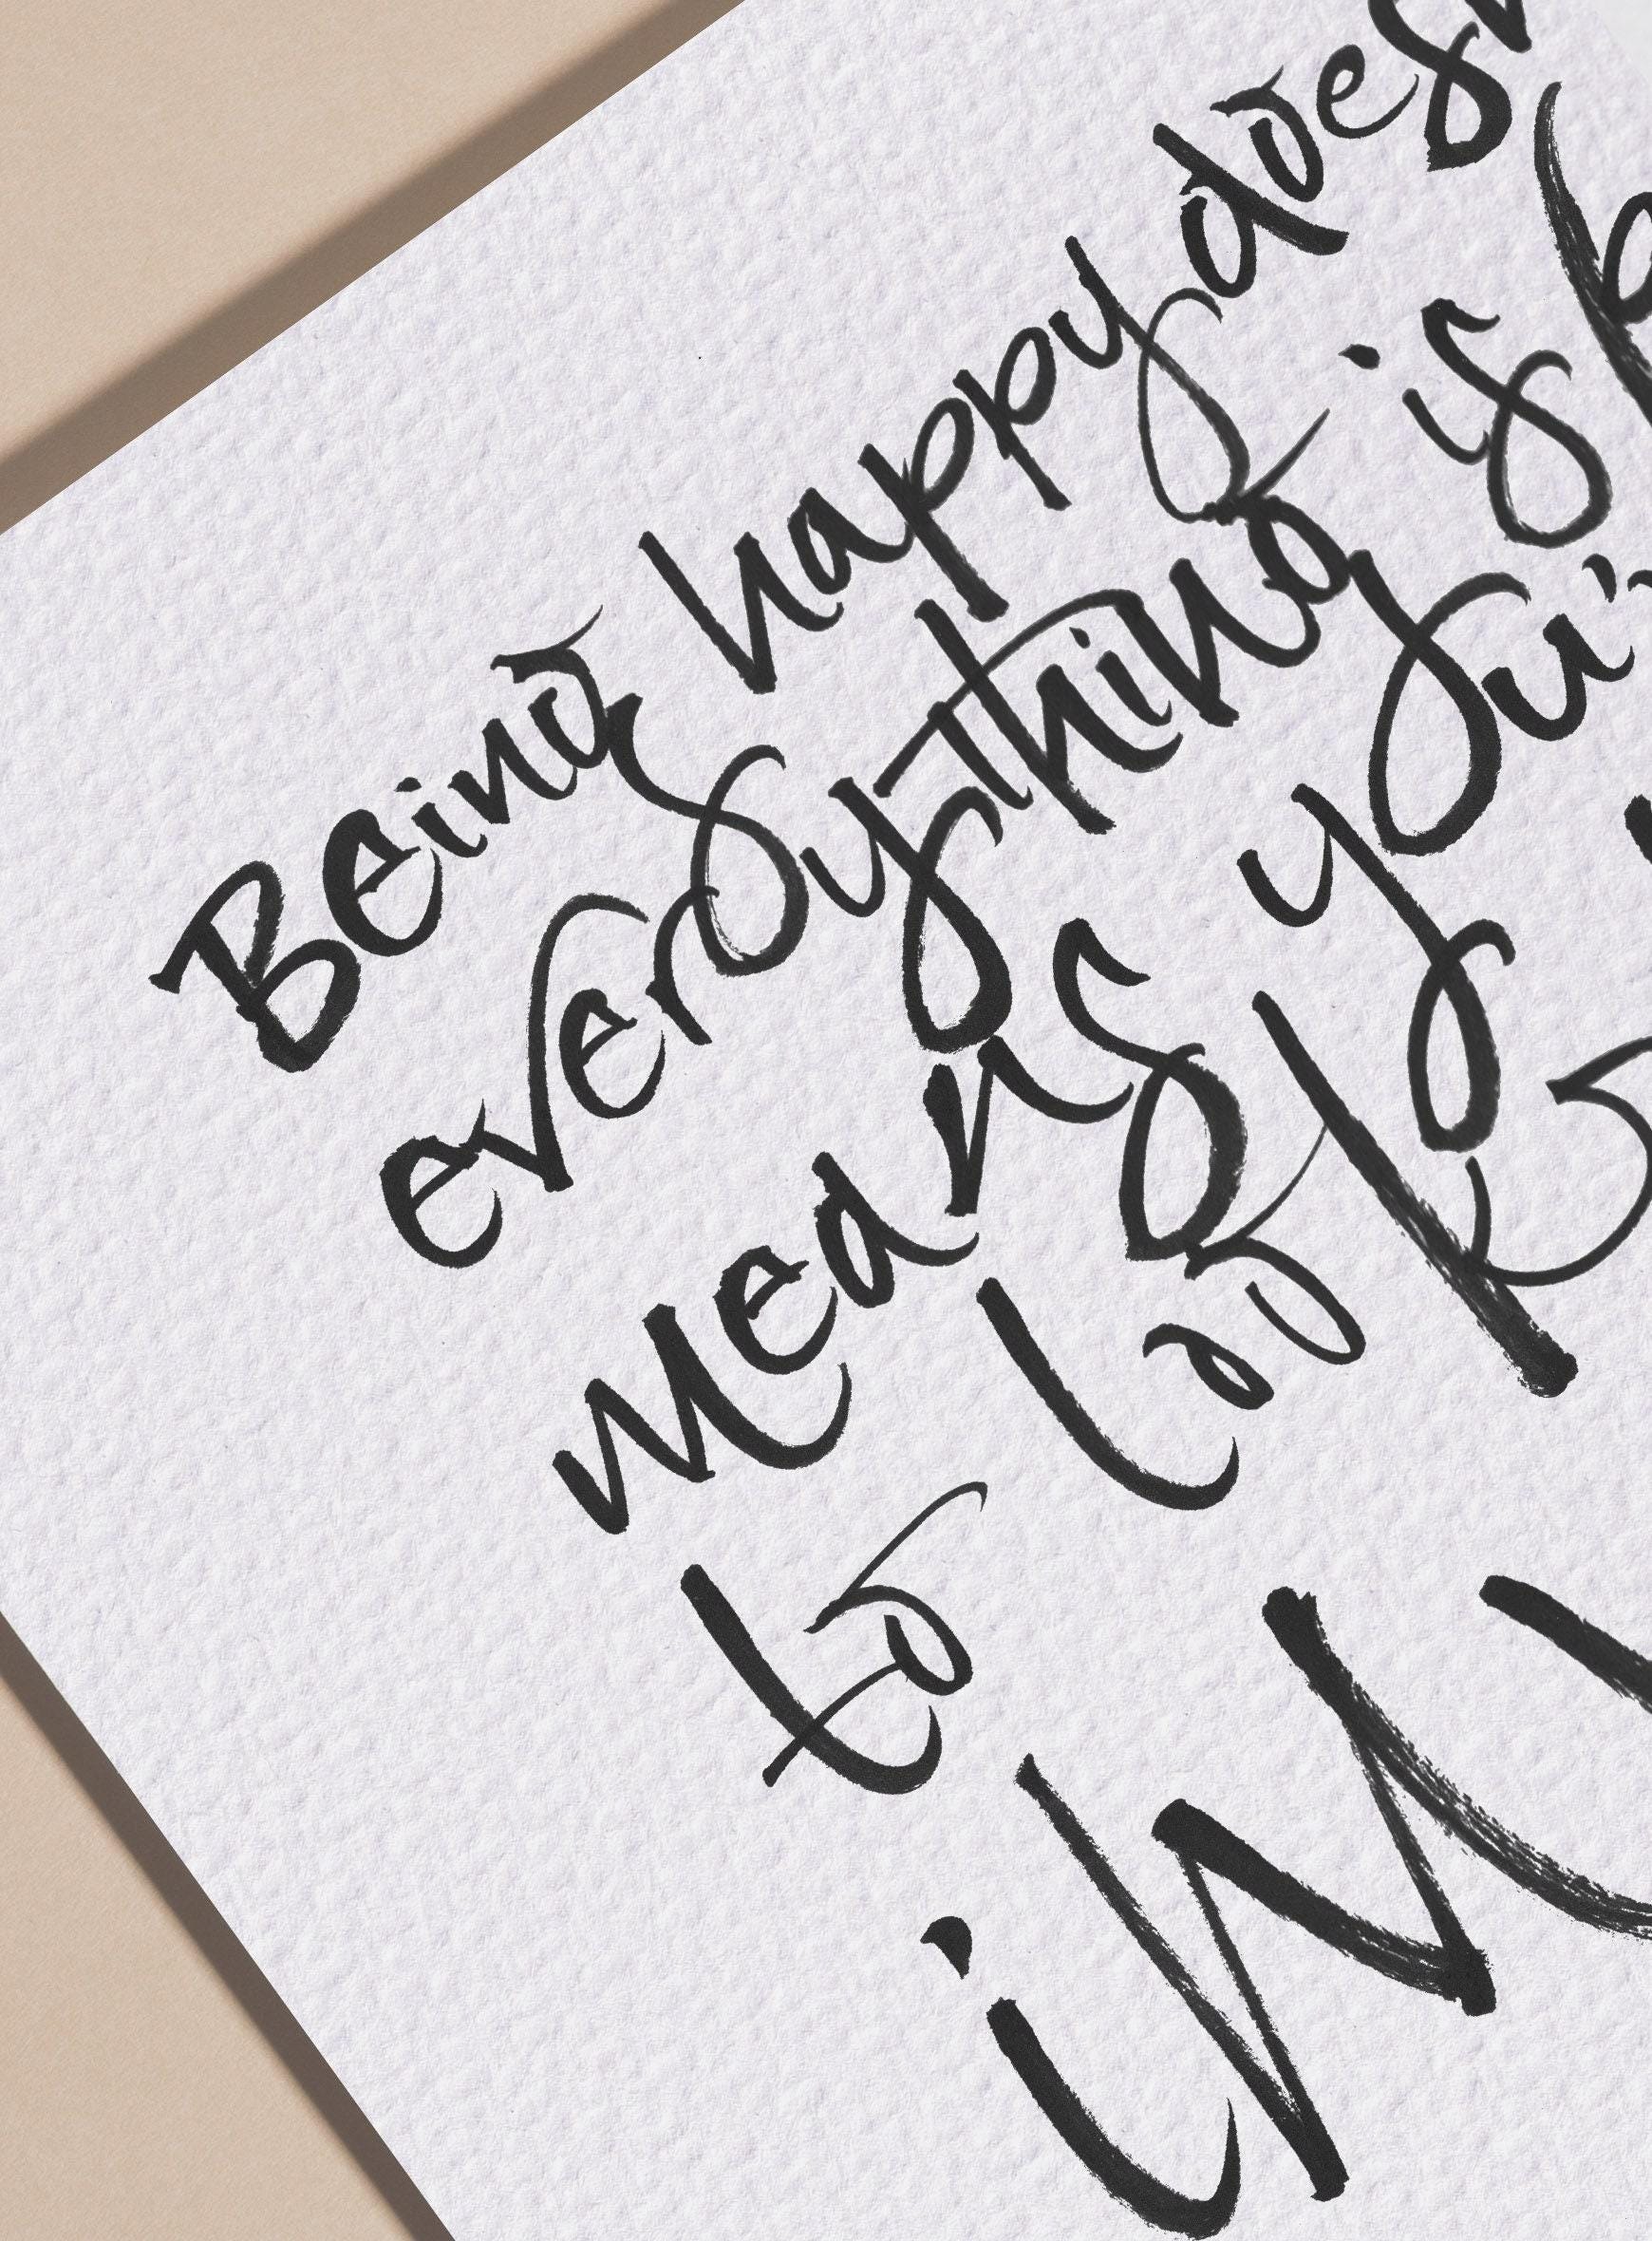 Being happy doesn
everything is p
means you'
to look
im